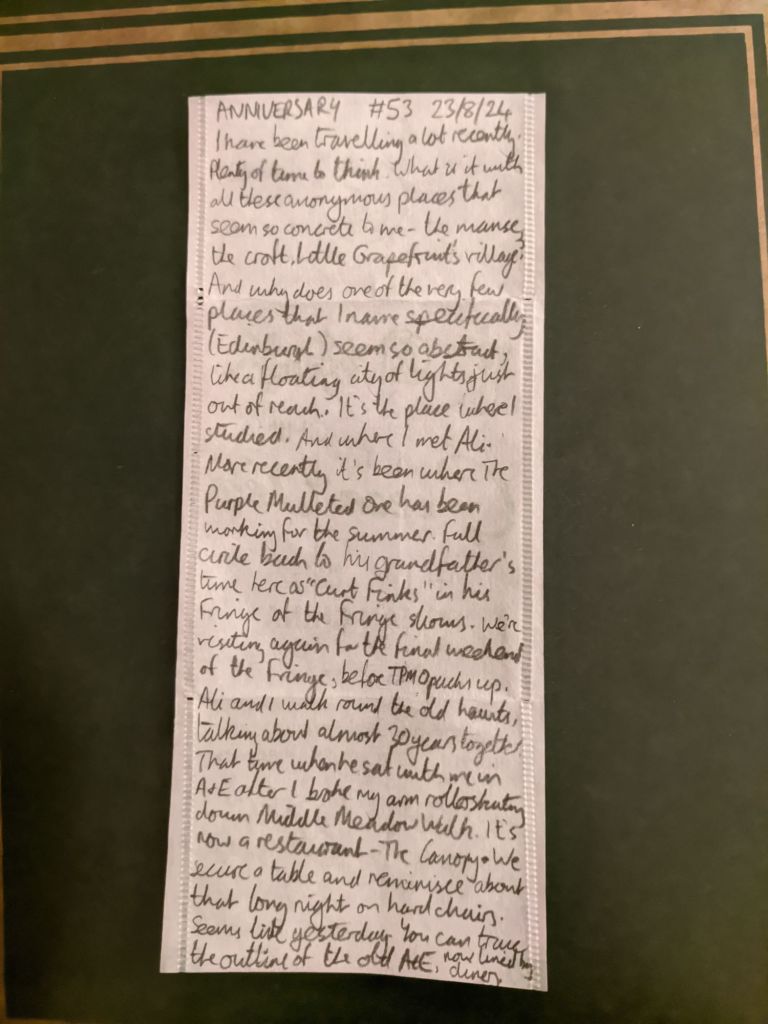 ANNIVERSARY #53 23/8/24
I have been travelling a lot recently.
Plenty of time to think. What is it with
all these anonymous places that
seem so concrete to me - the manse,
the croft, Little Grapefruit's village?
And why does one of the very few
places that I name specifically
(Edinburgh) seem so abstract,
like a floating city of lights just
out of reach. It's the place where I
studied. And where I met Ali.
More recently it's been where The
Purple Mulleted One has been
working for the summer. Full
circle back to his grandfather's
time here as "Curt Finks" in his
Fringe of the Fringe shows. We're
visiting again for the final weekend
of the Fringe, before TPMO packs up.
Ali and I walk round the old haunts,
talking about almost 30 years together.
That time when he sat with me in
A&E after I broke my arm rollerskating
down Middle Meadow Walk. It's
now a restaurant - The Canopy. We
secure a table and reminisce about
that long night on hard chairs.
Seems like yesterday. You can trace
the outline of the old A&E, now lined by
diners.